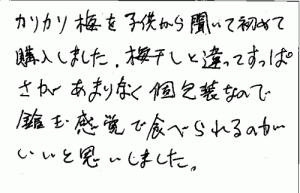 カリカリ梅を子供から聞いて初めて
購入しました。梅干しと違ってすっぱ
さがあまりなく個包装なので
飴玉感覚で食べられるのが
いいと思いしました。